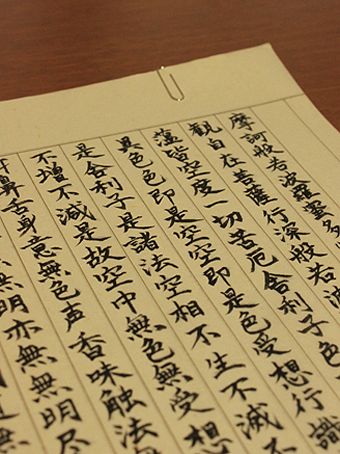 摩訶般若波羅蜜多
観自在菩薩行深般若波
蘊皆空度一切苦厄舎利子色
異色色即是空空即是色受想行識
是舎利子是諸法空相不生不滅不
不増不減是故空中無色無受想
鼻舌身意無色声香味触法無
無明亦無無明尽